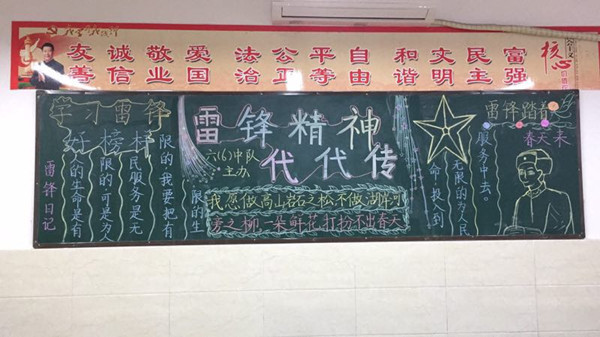 核心
富强
民主
文明
和谐
自由
平等
公正
法治
爱国
敬业
诚信
友善
学习雷锋
好榜样
雷锋日记
人的生命是有
限的可是为人
民服务是无
限的我要把有
限的生
命投到
无限的为人民
服务中去。
雷锋精神
代代传
六(6)中队
主办
我愿做高山岩石之松不做湖岸河
旁之柳一朵鲜花打扮不出春天
雷锋踏着
春天来